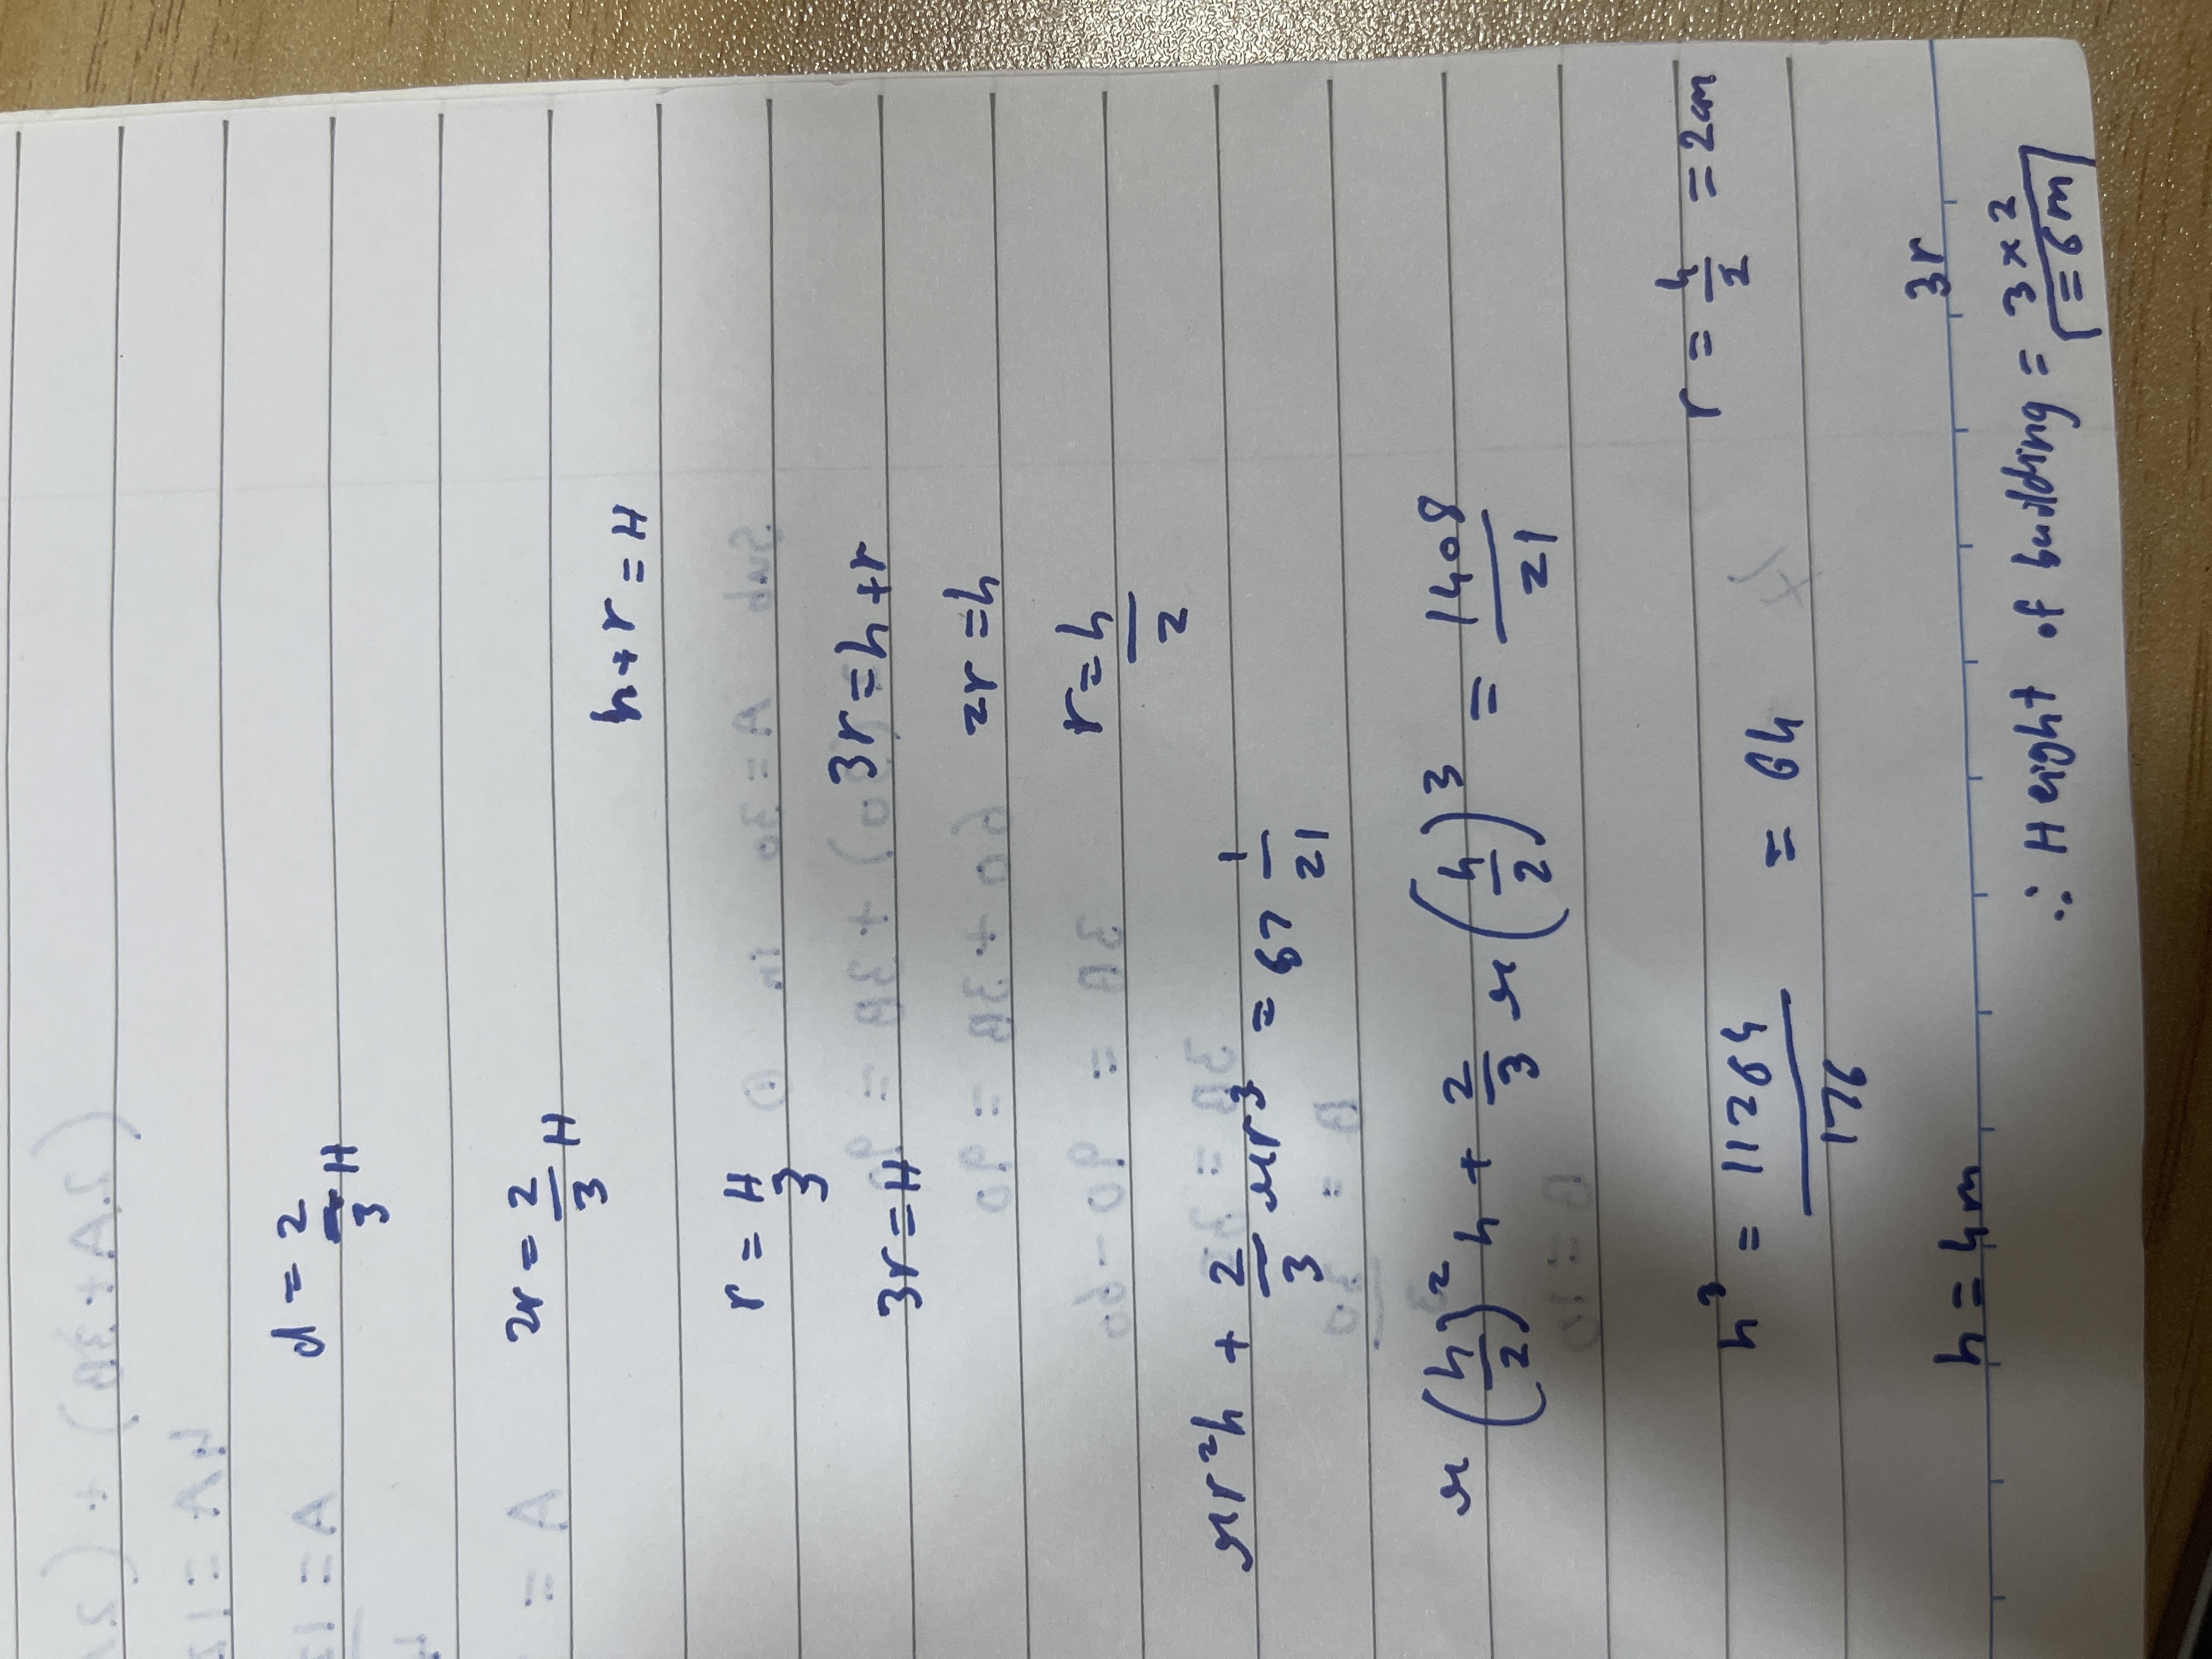 d = 2/3 H
2r = 2/3 H
h + r = H
r = H/3
3r = H
3r = h + r
2r = h
r = h/2
πr²h + 2/3 πr³ = 67 1/21
π(h/2)²h + 2/3 π(h/2)³ = 1408/21
h³ = 11264/176 = 64
r = 4/2 = 2m
h = 4m
3r
∴ Height of building = 3 × 2
= 6m